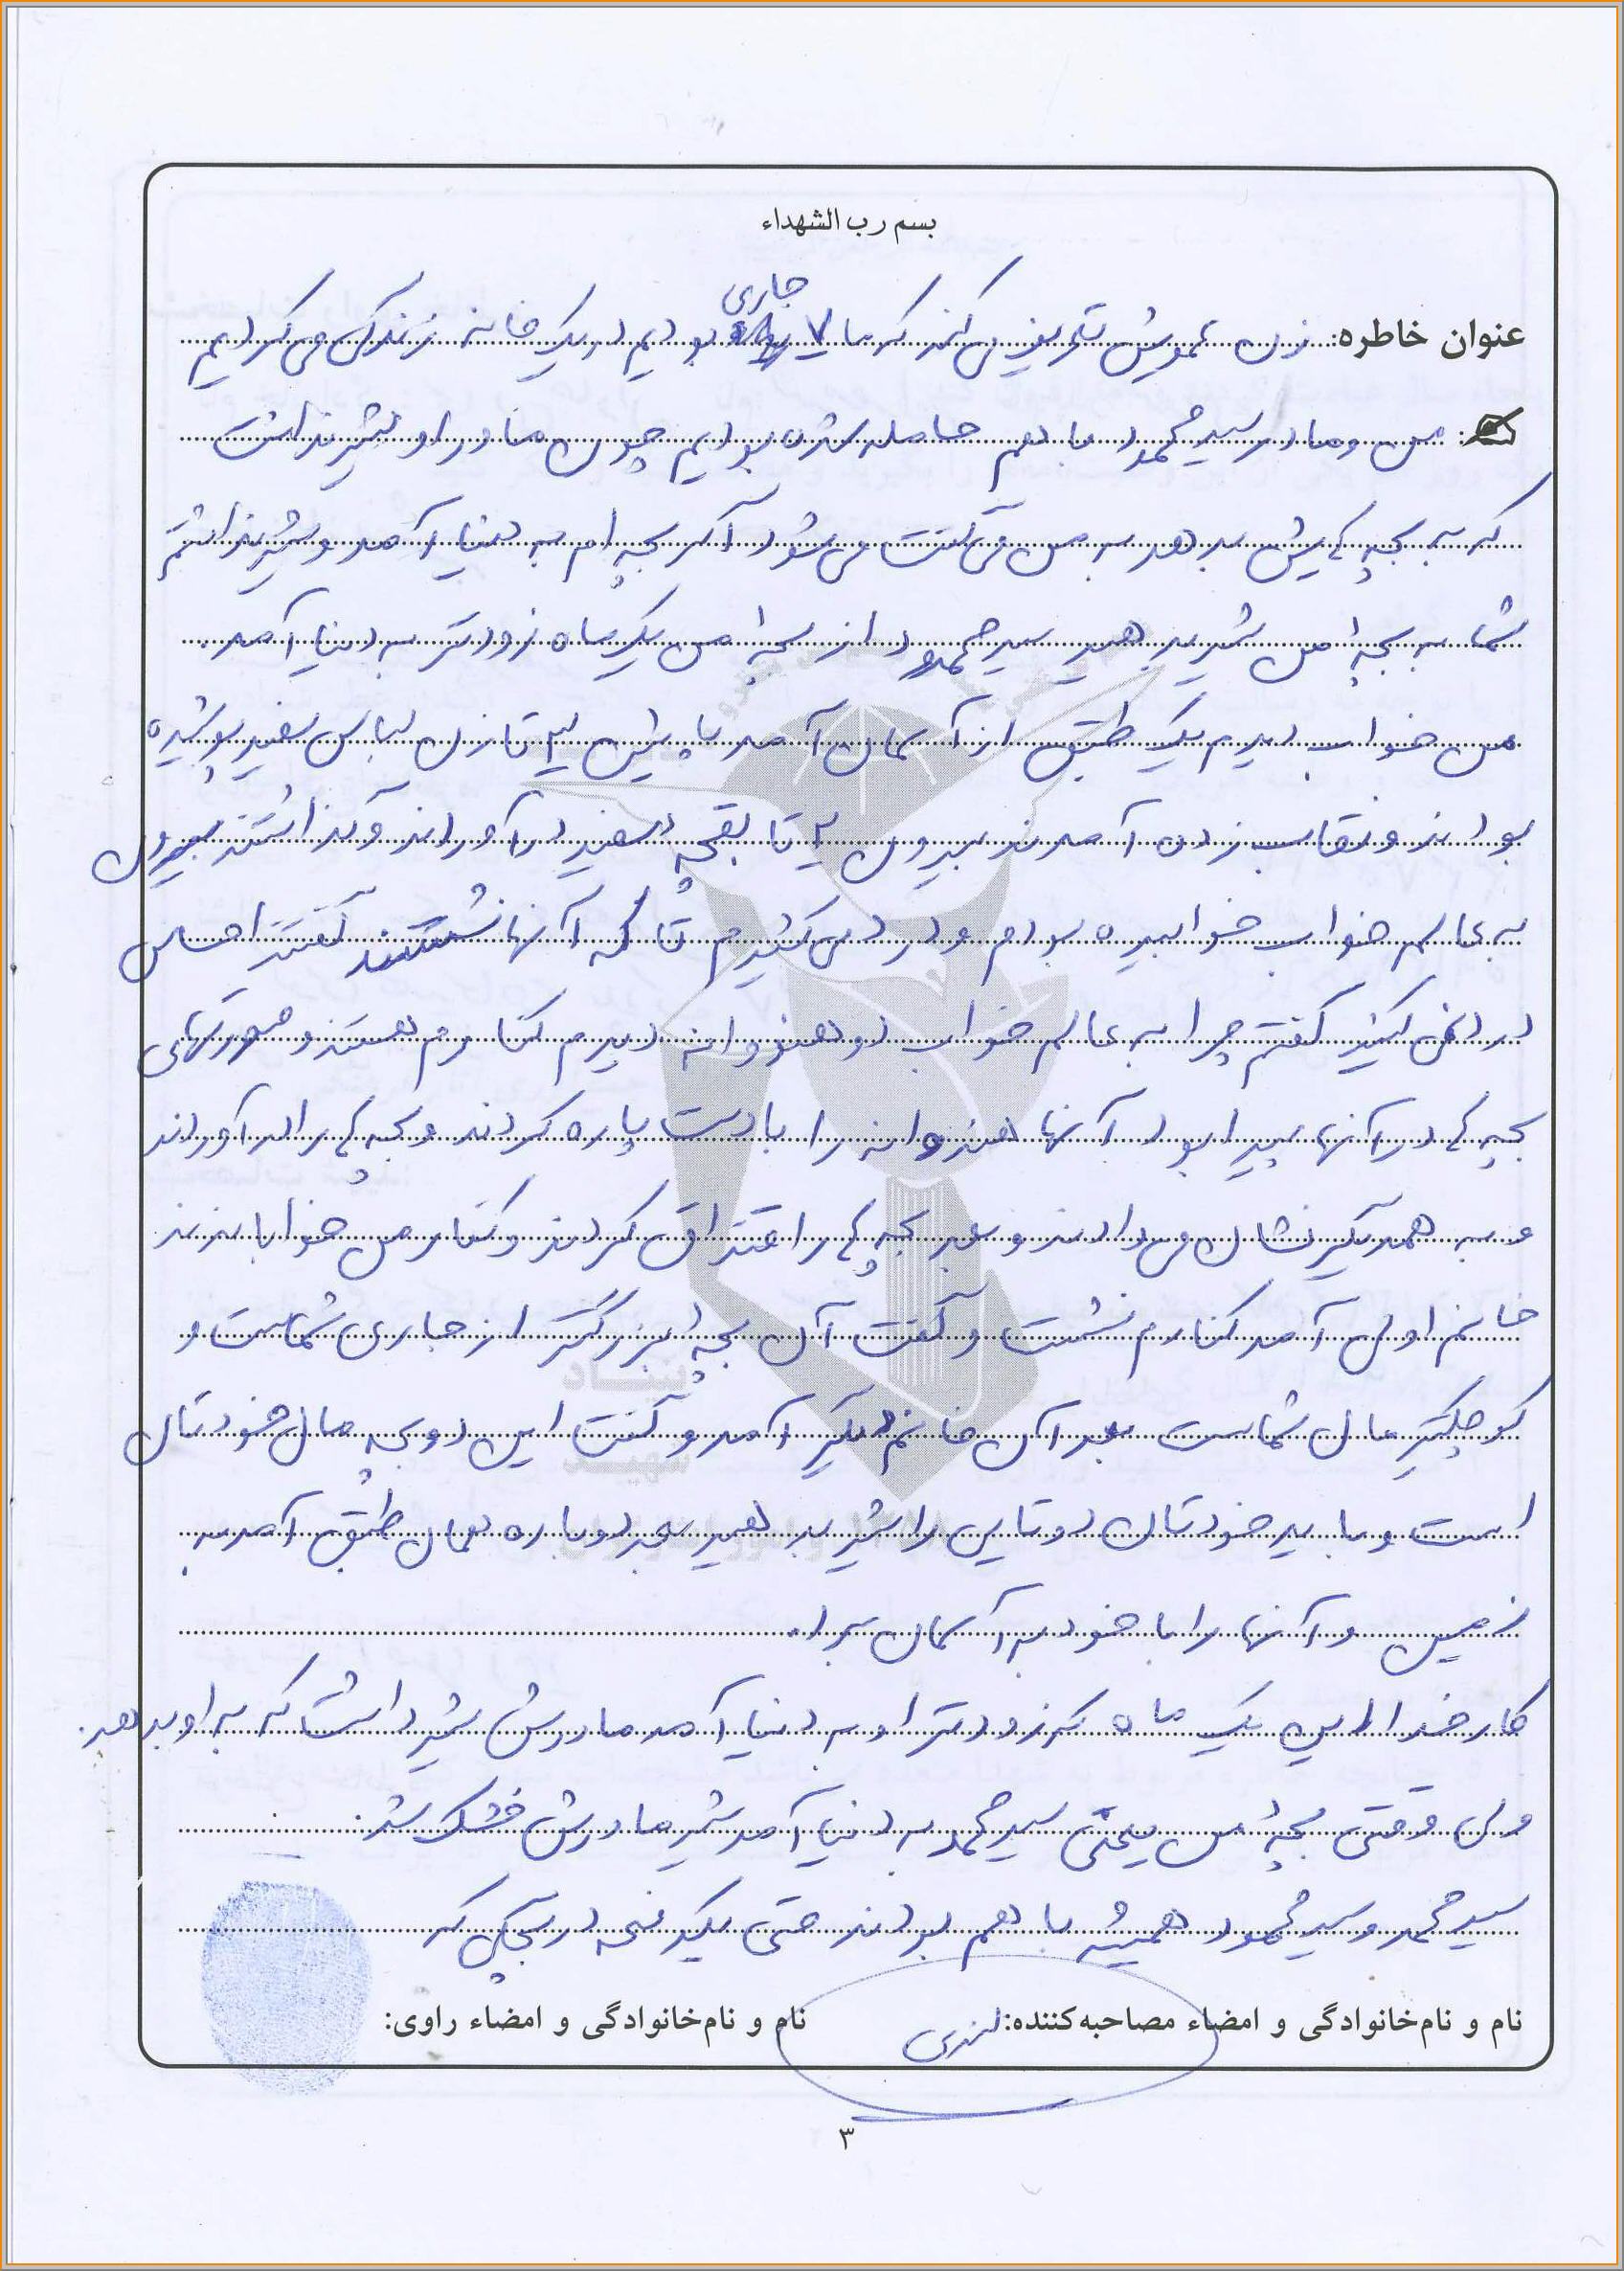 بسم رب الشهداء
عنوان خاطره: زن عمویش تعریف می کند که ما ۷ جاری بودیم در یک خانه زندگی می کردیم
من و مادر سید محمود با هم حامله شده بودیم چون مادر او شیر نداشت
که به بچه هایش بدهد به من می گفت می شود اگر بچه ام به دنیا آمد و شیر نداشتم
شما به بچه من شیر بدهید سید محمود از بچه من یک ماه زودتر به دنیا آمد.
من خواب دیدم یک طبق از آسمان آمد پایین ۲ تا زن لباس سفید پوشیده
بودند و نقاب زده آمدند بیرون ۲ تا بقچه سفید در آوردند و گذاشتند بیرون
به عالم خواب خوابیده بودم و درد می کشیدم تا که آنها نشستند گفتند احساس
درد نمی کنید گفتم چرا به عالم خواب دو هندوانه دیدم کنارم هستند و صورتهای
بچه ها در آنها پیدا بود آنها هندوانه را با دست پاره کردند و بچه ها را در آوردند
و به همدیگر نشان می دادند و بعد بچه ها را قنداق کردند و کنار من خواباندند
خانم اولی آمد کنارم نشست و گفت آن بچه بزرگتر از جاری شماست و
کوچکتر مال شماست بعد آن خانم دیگر آمد و گفت این دو بچه مال خودتان
است و باید خودتان دوتایی را شیر بدهید بعد دوباره همان طبق آمد به
زمین و آنها را با خود به آسمان برد.
کار خدا این یک ماه که زودتر او به دنیا آمد مادرش شیر داشت که به او بدهد.
ولی وقتی بچه من یعنی سید محمد به دنیا آمد شیر مادرش خشک شد.
سید محمد و سید محمود همیشه با هم بودند حتی یکدفعه در بچگی که
نام و نام‌خانوادگی و امضاء مصاحبه‌کننده:
نام و نام‌خانوادگی و امضاء راوی:
۳